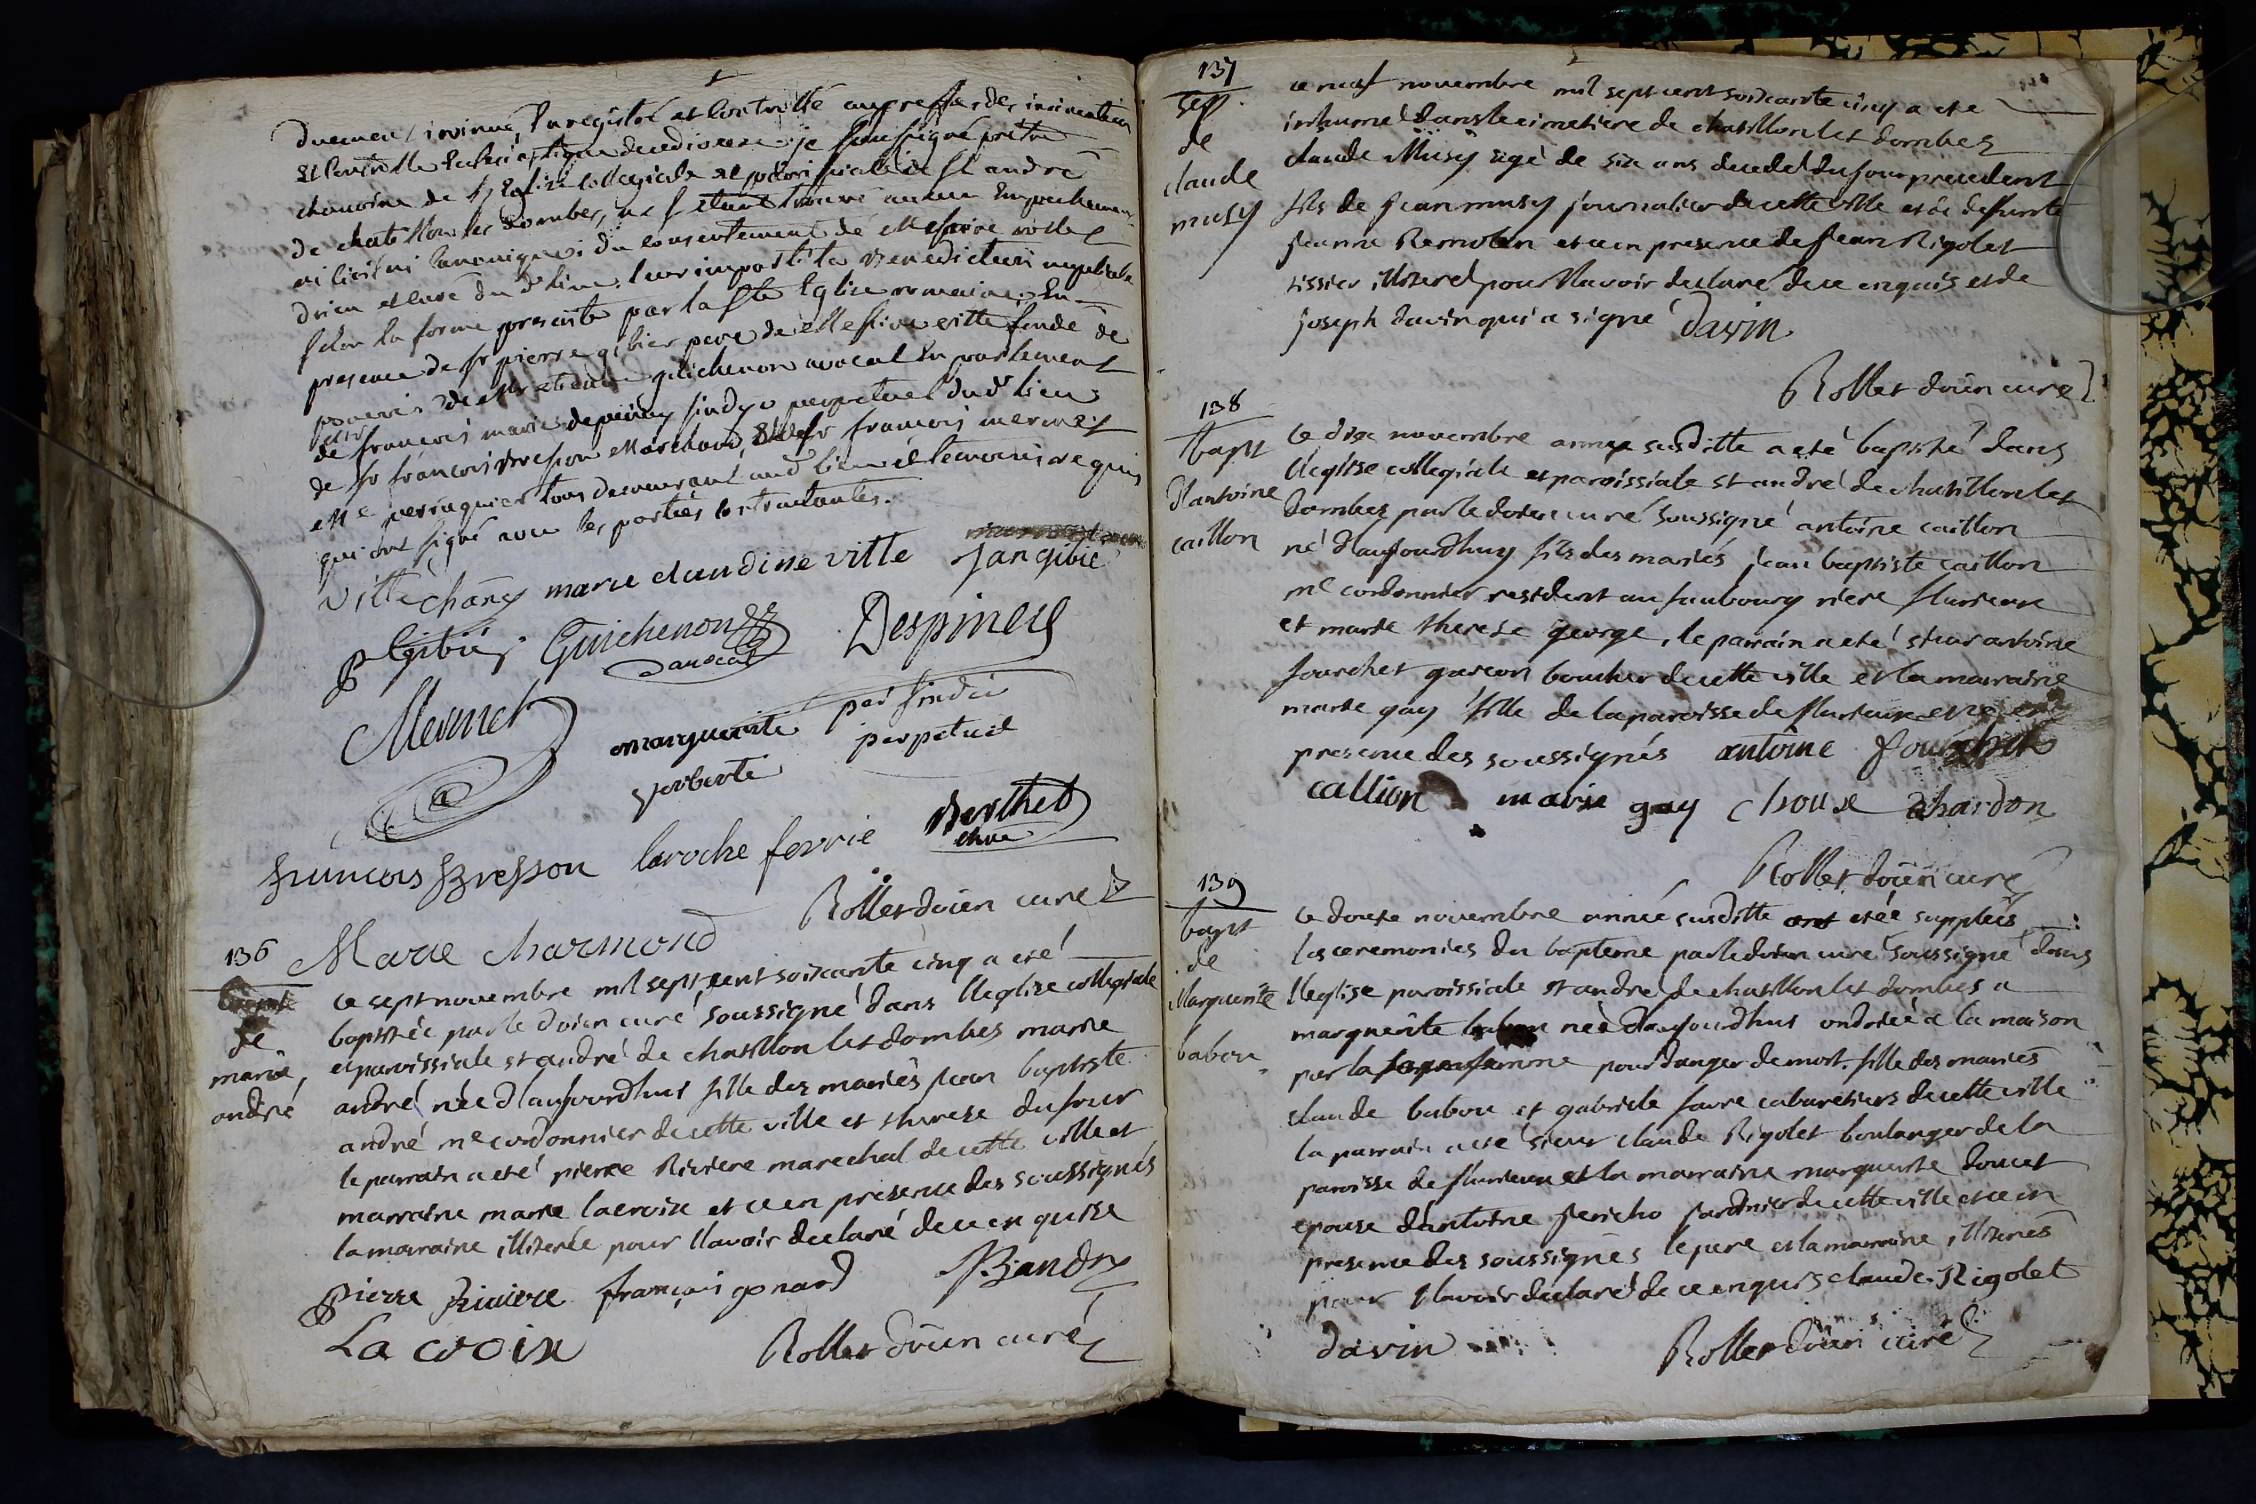 duement insinué, Enregistré et Controllé au greffe des insinuations
Et Controlle Ecclesiastique de je soussigné prêtre
chanoine de l'Eglise Collegiale et paroissiale de St andré
de chatillon les Dombes, ne s'étant trouvé aucun Empechement
ni Civil ni Canonique du consentement de Messire rollet
doien et curé du d. lieu, leur imparti la Benediction nuptiale
selon la forme prescrite par la Ste Eglise romaine, En
presence de Sr pierre gibier pere de Messire ville fondé de
pouvoir de guichenon avocat En parlement
de Sr françois marie despiney sindic perpetuel du d. lieu
de Sr françois Bresson Marchand, Et de Sr françois mermet
Me perruquier tous demeurant aud. lieu et temoins requis
qui ont signé avec les parties Contractantes.
ville chane marie claudine ville jangibié
P Gibié Guichenon avocat Despiney
Mermet marguerite par sindic
perpetuel
francois Bresson laroche ferrié Berthet
chne
Rollet doïen curé
Marie charmond
136
bapt
de
marie
andré
ce sept novembre mil sept cent soixante cinq a été
baptisée par le doien curé soussigné dans l'eglise collegiale
et paroissiale st andré de chatillon les dombes marie
andré née d'aujourdhui fille des mariés jean baptiste
andré me cordonnier de cette ville et therese dufour
le parrain a été pierre Riviere marechal de cette ville et
marraine marie lacroix et ce en presence des soussignés
la marraine illiterée pour l'avoir declaré de ce enquise
pierre Riviere françois gonard JBandré
La croix Rollet doïen curé
137
sep.
de
claude
musy
ce neuf novembre mil sept cent soixante cinq a eté
inhumé dans le cimetiere de chatillon les dombes
claude Musy agé de six ans decedé du jour precedent
fils de jean musy journalier de cette ville et de defunte
jeanne et ce en presence de jean Rigolet
tissier illiteré pour l'avoir declaré de ce enquis et de
joseph davin qui a signé davin
Rollet doïen curé
138
bapt
d'antoine
caillon
ce dix novembre année susditte a eté baptisé dans
l'eglise collegiale et paroissiale st andré de chatillon les
dombes par le doien curé soussigné antoine caillon
né d'aujourdhuy fils des mariés jean baptiste caillon
me cordonnier resident au faubourg riere flurieux
et marie therese george, le parrain a eté sieur antoine
fourchet garcon boucher de cette ville et la marraine
marie gay fille de la paroisse de flurieux et ce en
presence des soussignés antoine fourchet
callion marie gay chardon
Rollet doïen curé
139
bapt
de
Marguerite
babou
ce douze novembre année susditte ont eteé suppleés
les ceremonies du bapteme par le doien curé soussigné dans
l'eglise paroissiale st andré de chatillon les dombes a
marguerite babou neè d'aujourdhui ondoiée a la maison
par la sage femme pour danger de mort. fille des mariés
claude babou et gabriele favre cabaretiers de cette ville
le parrain a eté sieur claude Rigolet boulanger de la
paroisse de flurieux et la marraine marguerite doucet
epouse d'antoine jericho jardinier de cette ville et ce en
presence des soussignés le pere et la marraine illiterés
pour l'avoir declaré de ce enquis claude Rigolet
davin Rollet doïen curé